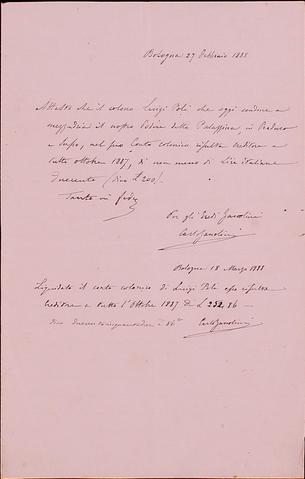 Bologna 27 Febbraio 1888
Attesto che il colono Luigi Poli che oggi conduce a
mezzadria il nostro Podere detto Palazzina in Praduro
e Sasso, nel suo Conto colonico risulta creditore a
tutto ottobre 1887, di non meno di Lire italiane
Duecento (dico £ 200).
Tanto in fede
Per gli Eredi Zanolini
Carlo Zanolini
Bologna 18 Marzo 1888
Liquidato il conto colonico di Luigi Poli esso risulta
Creditore a tutto l'Ottobre 1887 di £ 252,86 —
dico duecentocinquantadue e 86
Carlo Zanolini